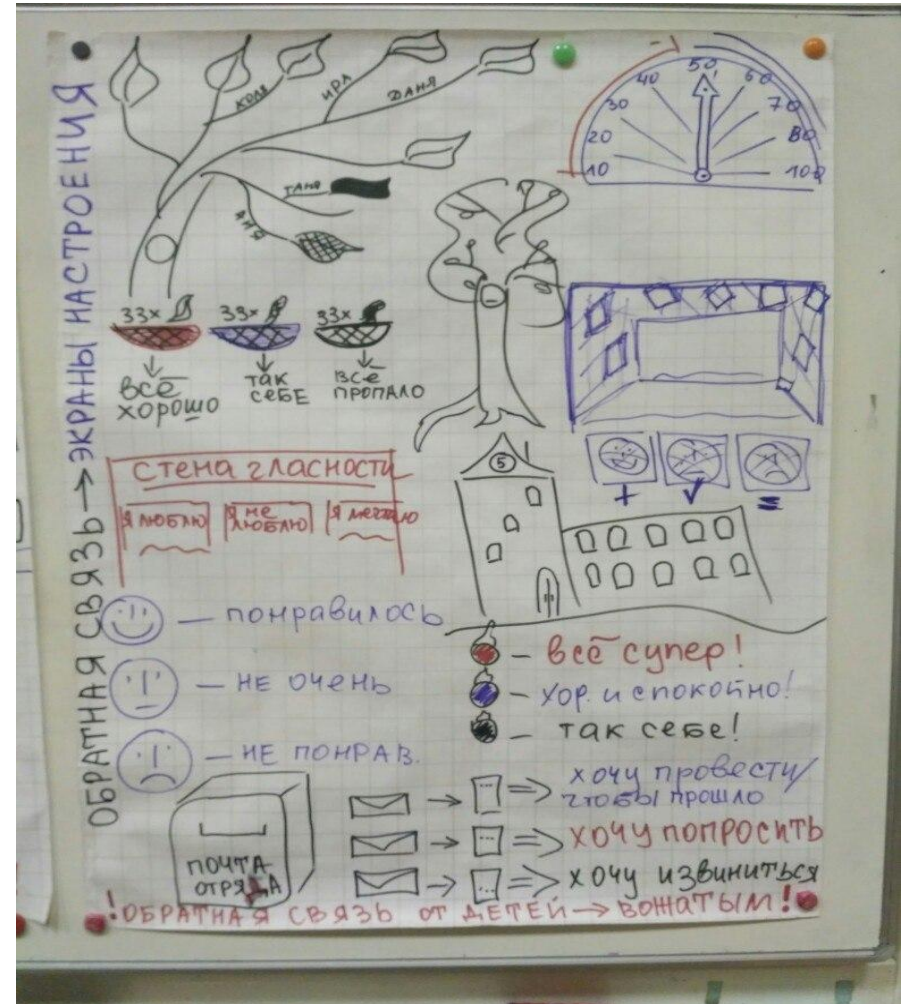 ОБРАТНАЯ СВЯЗЬ → ЭКРАНЫ НАСТРОЕНИЯ
КОЛЯ
ИРА
ДАНЯ
ТАНЯ
АНЯ
10 20 30 40 50 60 70 80 100
33х 33х 33х
всё хорошо
так себе
всё пропало
стена гласности
Я люблю
Я не люблю
Я мечтаю
5
+ ✓ =
— понравилось
— не очень
— не понрав.
— всё супер!
— хор. и спокойно!
— так себе!
ПОЧТА
ОТРЯДА
→ ⇒ хочу провести/
чтобы прошло
→ ⇒ хочу попросить
→ ⇒ хочу извиниться
!ОБРАТНАЯ СВЯЗЬ ОТ ДЕТЕЙ → ВОЖАТЫМ!